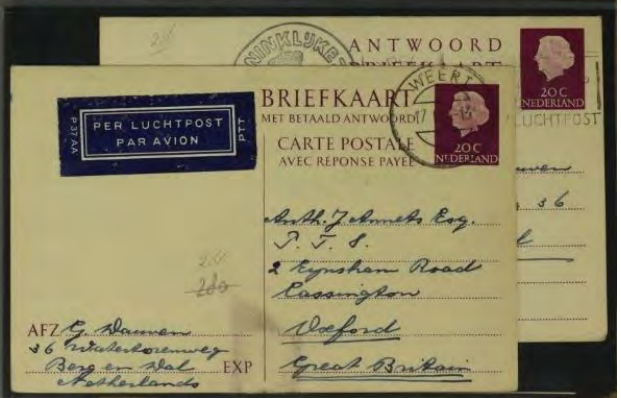 ANTWOORD
20 C
NEDERLAND
LUCHTPOST
36
PER LUCHTPOST
PAR AVION
P37AA
PTT
BRIEFKAART
MET BETAALD ANTWOORD
CARTE POSTALE
AVEC RÉPONSE PAYÉE
WEERT
17
20 C
NEDERLAND
Anth. J. Annets Esq.
P. T. S.
2 Eynsham Road
Cassington
Oxford
Great Britain
280
AFZ G. Dauven
36 Watertorenweg
Berg en Dal
Netherlands
EXP